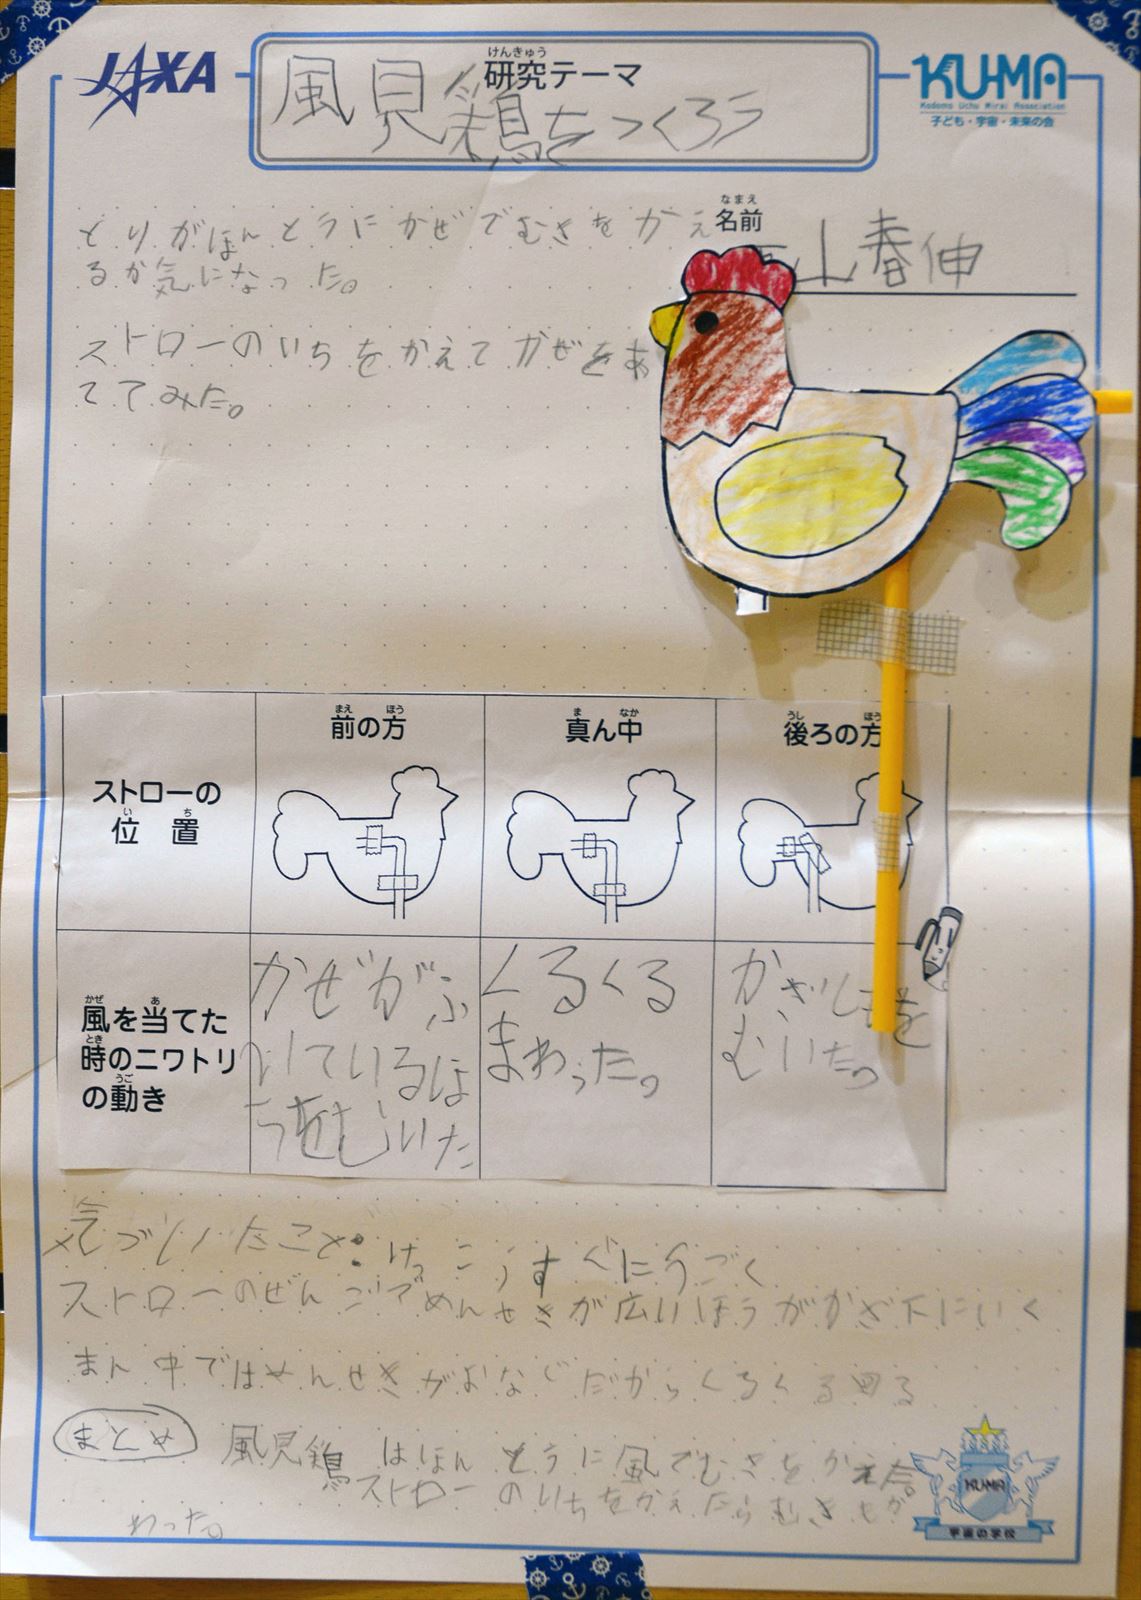 JAXA
けんきゅう
研究テーマ
風見鶏をつくろう
KU-MA
Kodomo Uchu Mirai Association
子ども・宇宙・未来の会
なまえ
名前
山春伸
とりがほんとうにかぜでむきをかえ
るか気になった。
ストローのいちをかえてかぜをあ
ててみた。
まえ ほう
前の方
ま なか
真ん中
うし ほう
後ろの方
ストローの
い ち
位置
かぜ あ
風を当てた
とき
時のニワトリ
うご
の動き
かぜがふ
いているほ
うをむいた
くるくる
まわった。
かざしもを
むいた。
気づいたこと:けっこうすぐにうごく
ストローのぜんごでめんせきが広いほうがかざ下にいく
まん中ではめんせきがおなじだからくるくる回る
まとめ 風見鶏はほんとうに風でむきをかえた。
ストローのいちをかえたらむきもか
わった。
KU-MA
宇宙の学校